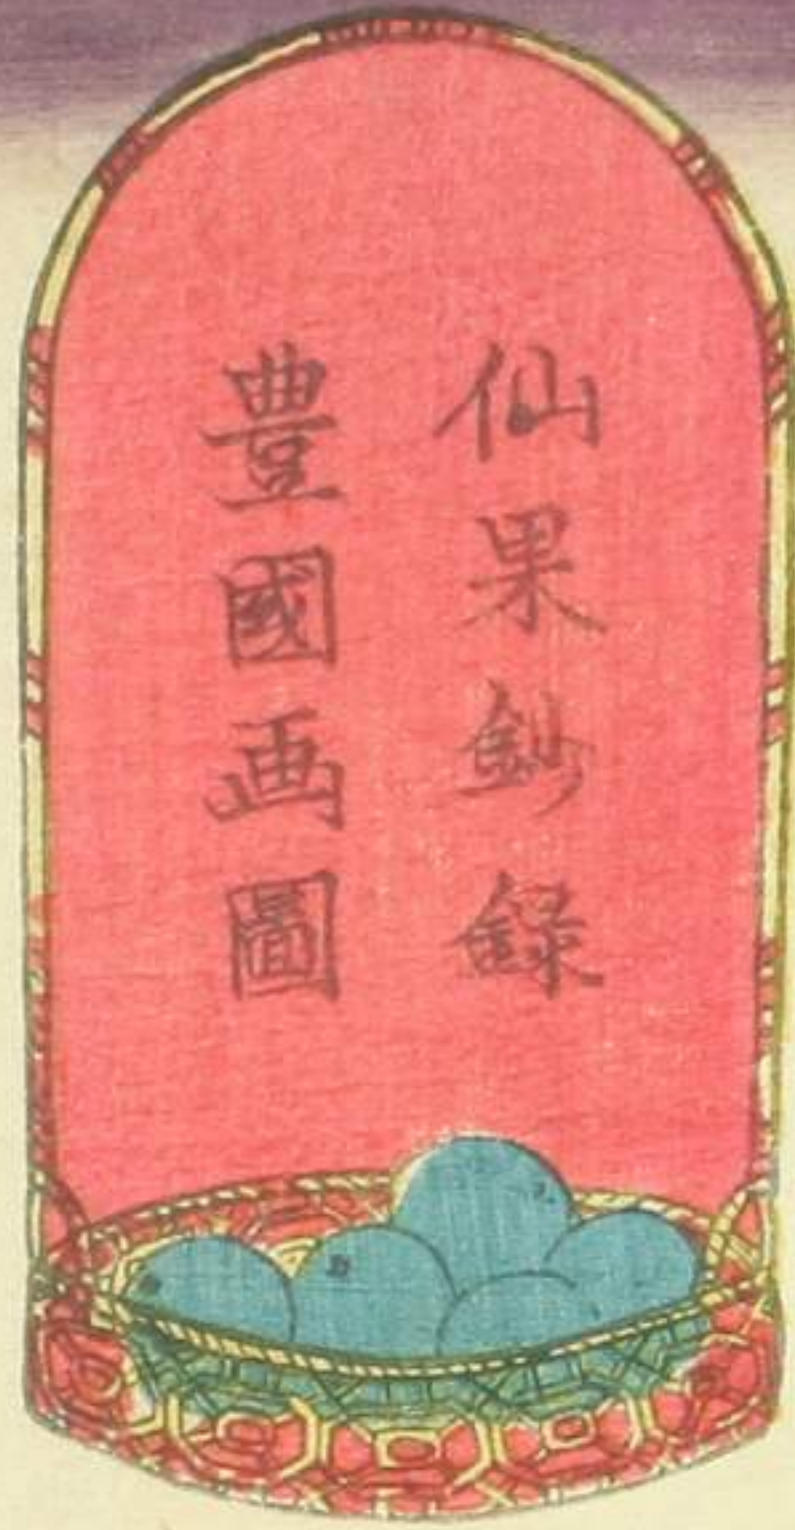 仙果鈔録
豊國画圖